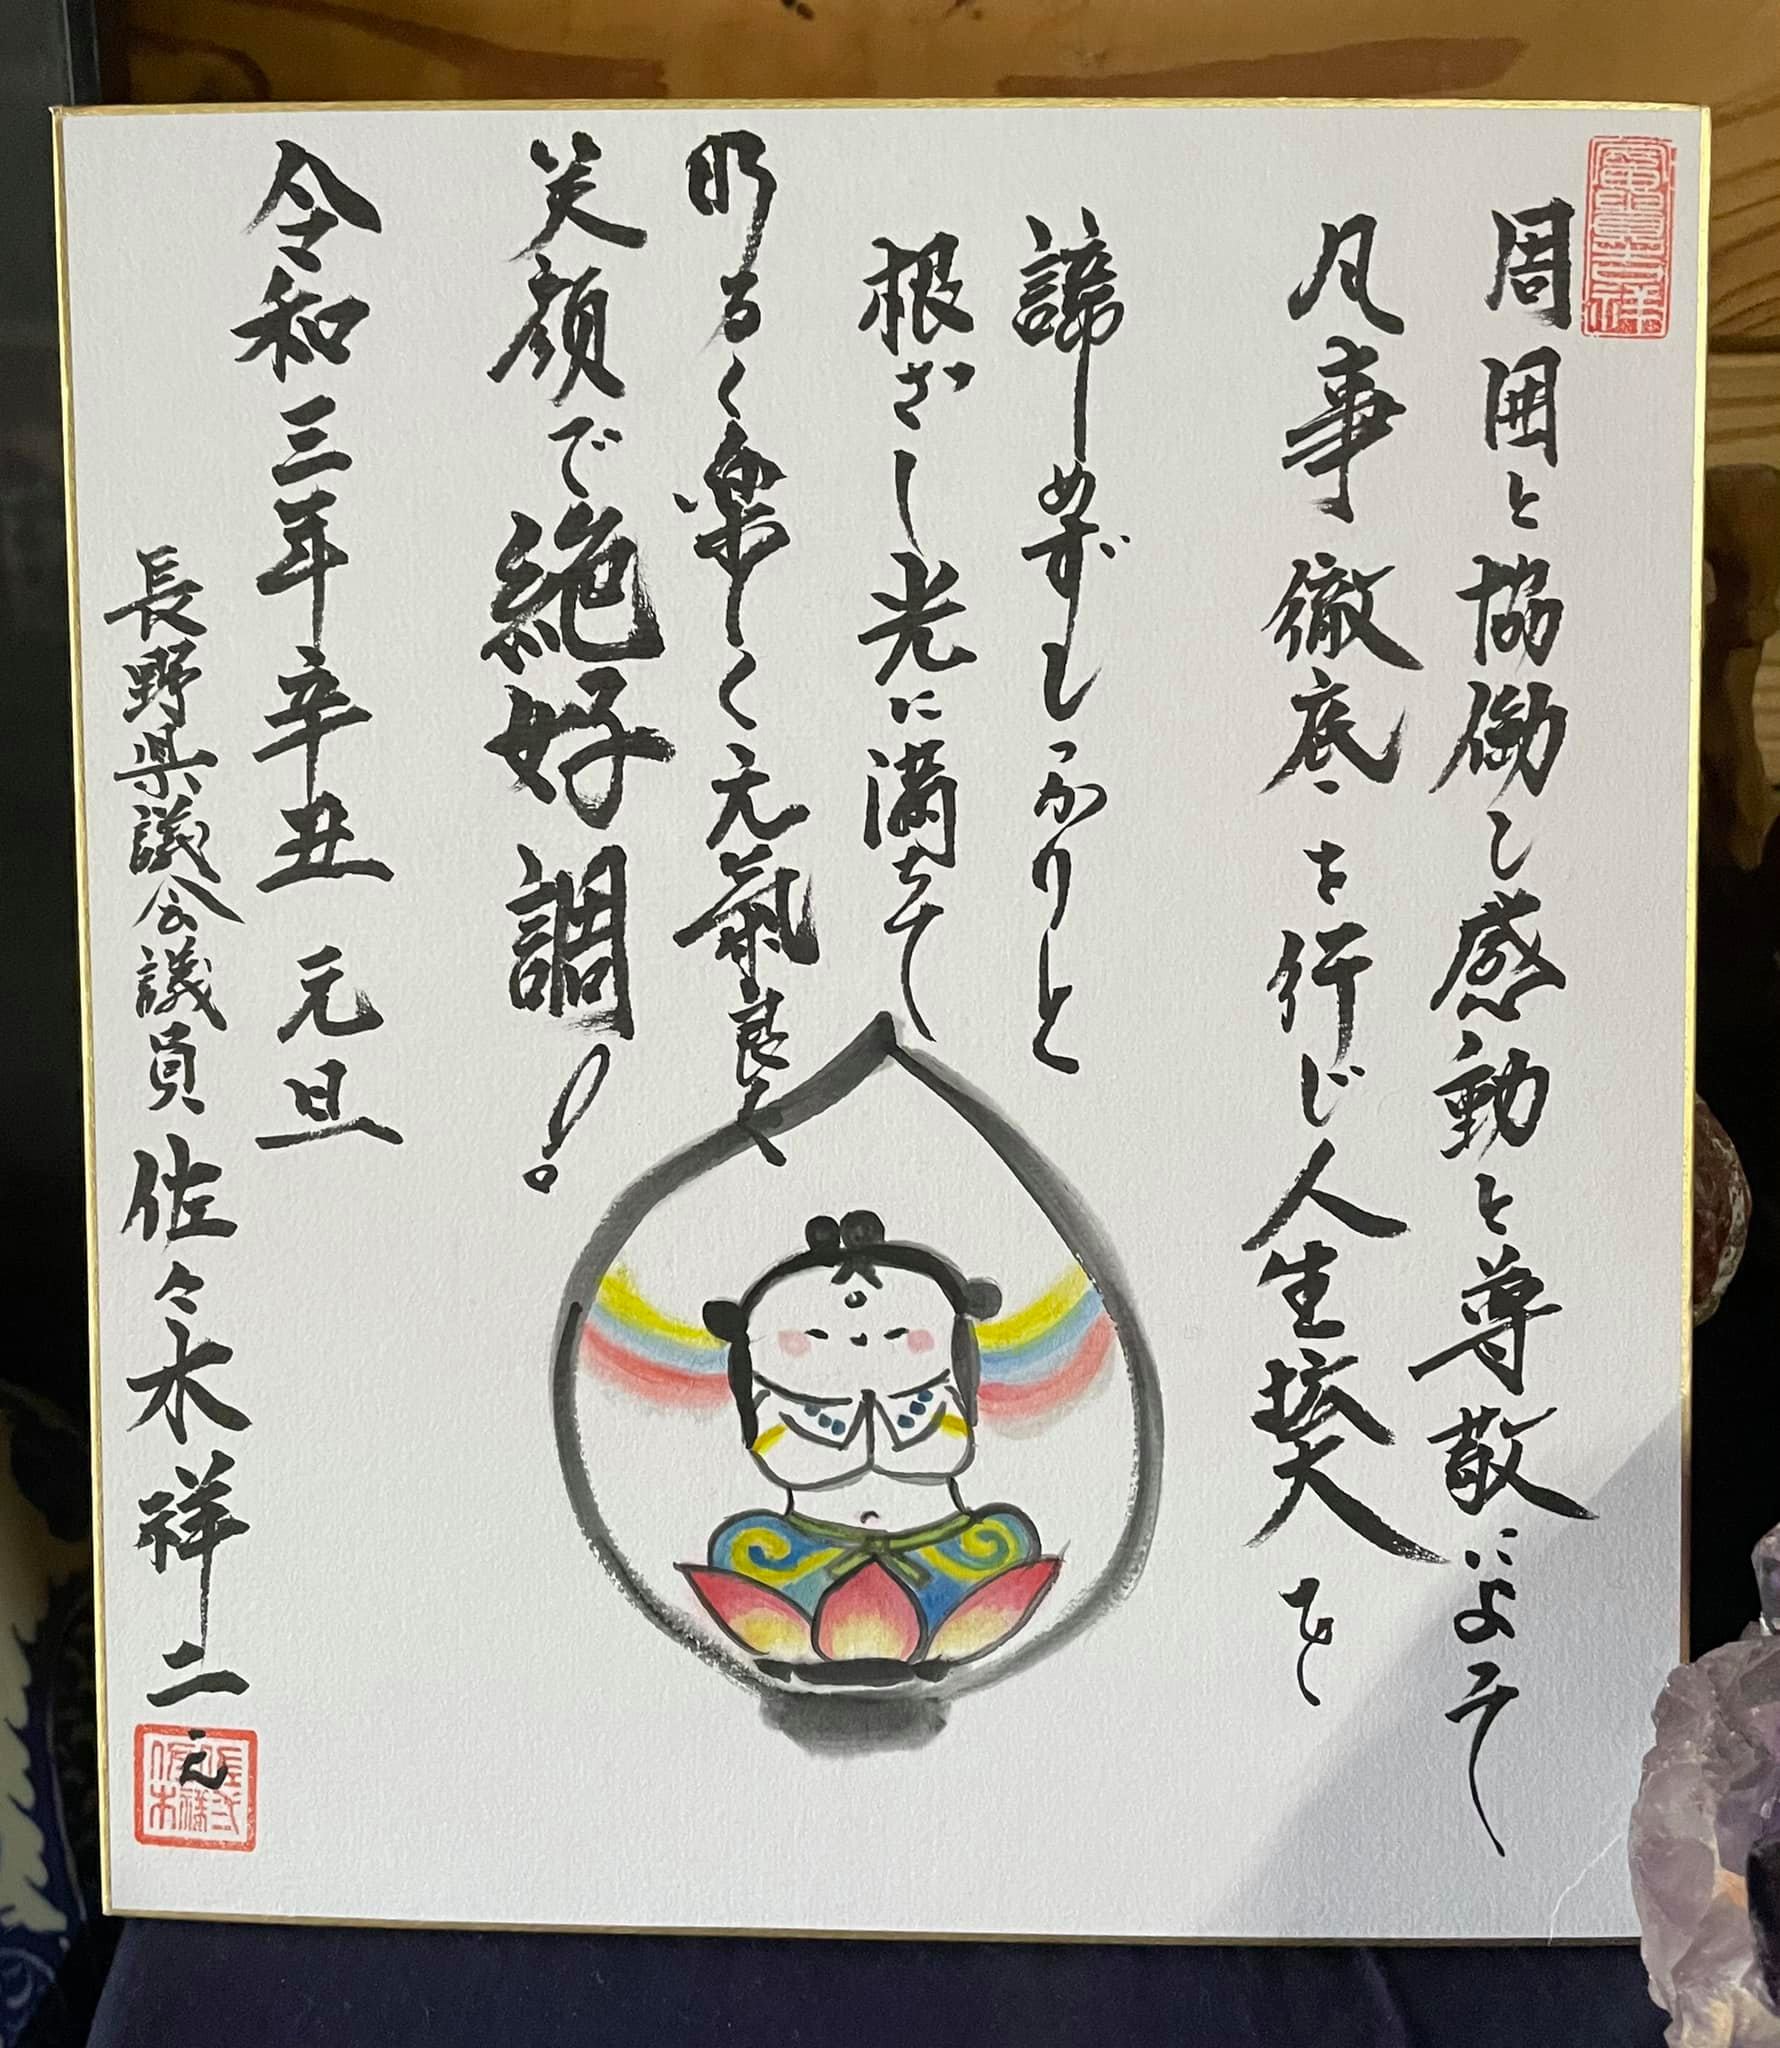 周囲と協働し感動と尊敬によって
凡事徹底を行じ人生拡大を
諦めずしっかりと
根ざし光に満ちて
明るく楽しく元氣良く
笑顔で絶好調!
令和三年辛丑 元旦
長野県議会議員 佐々木祥二